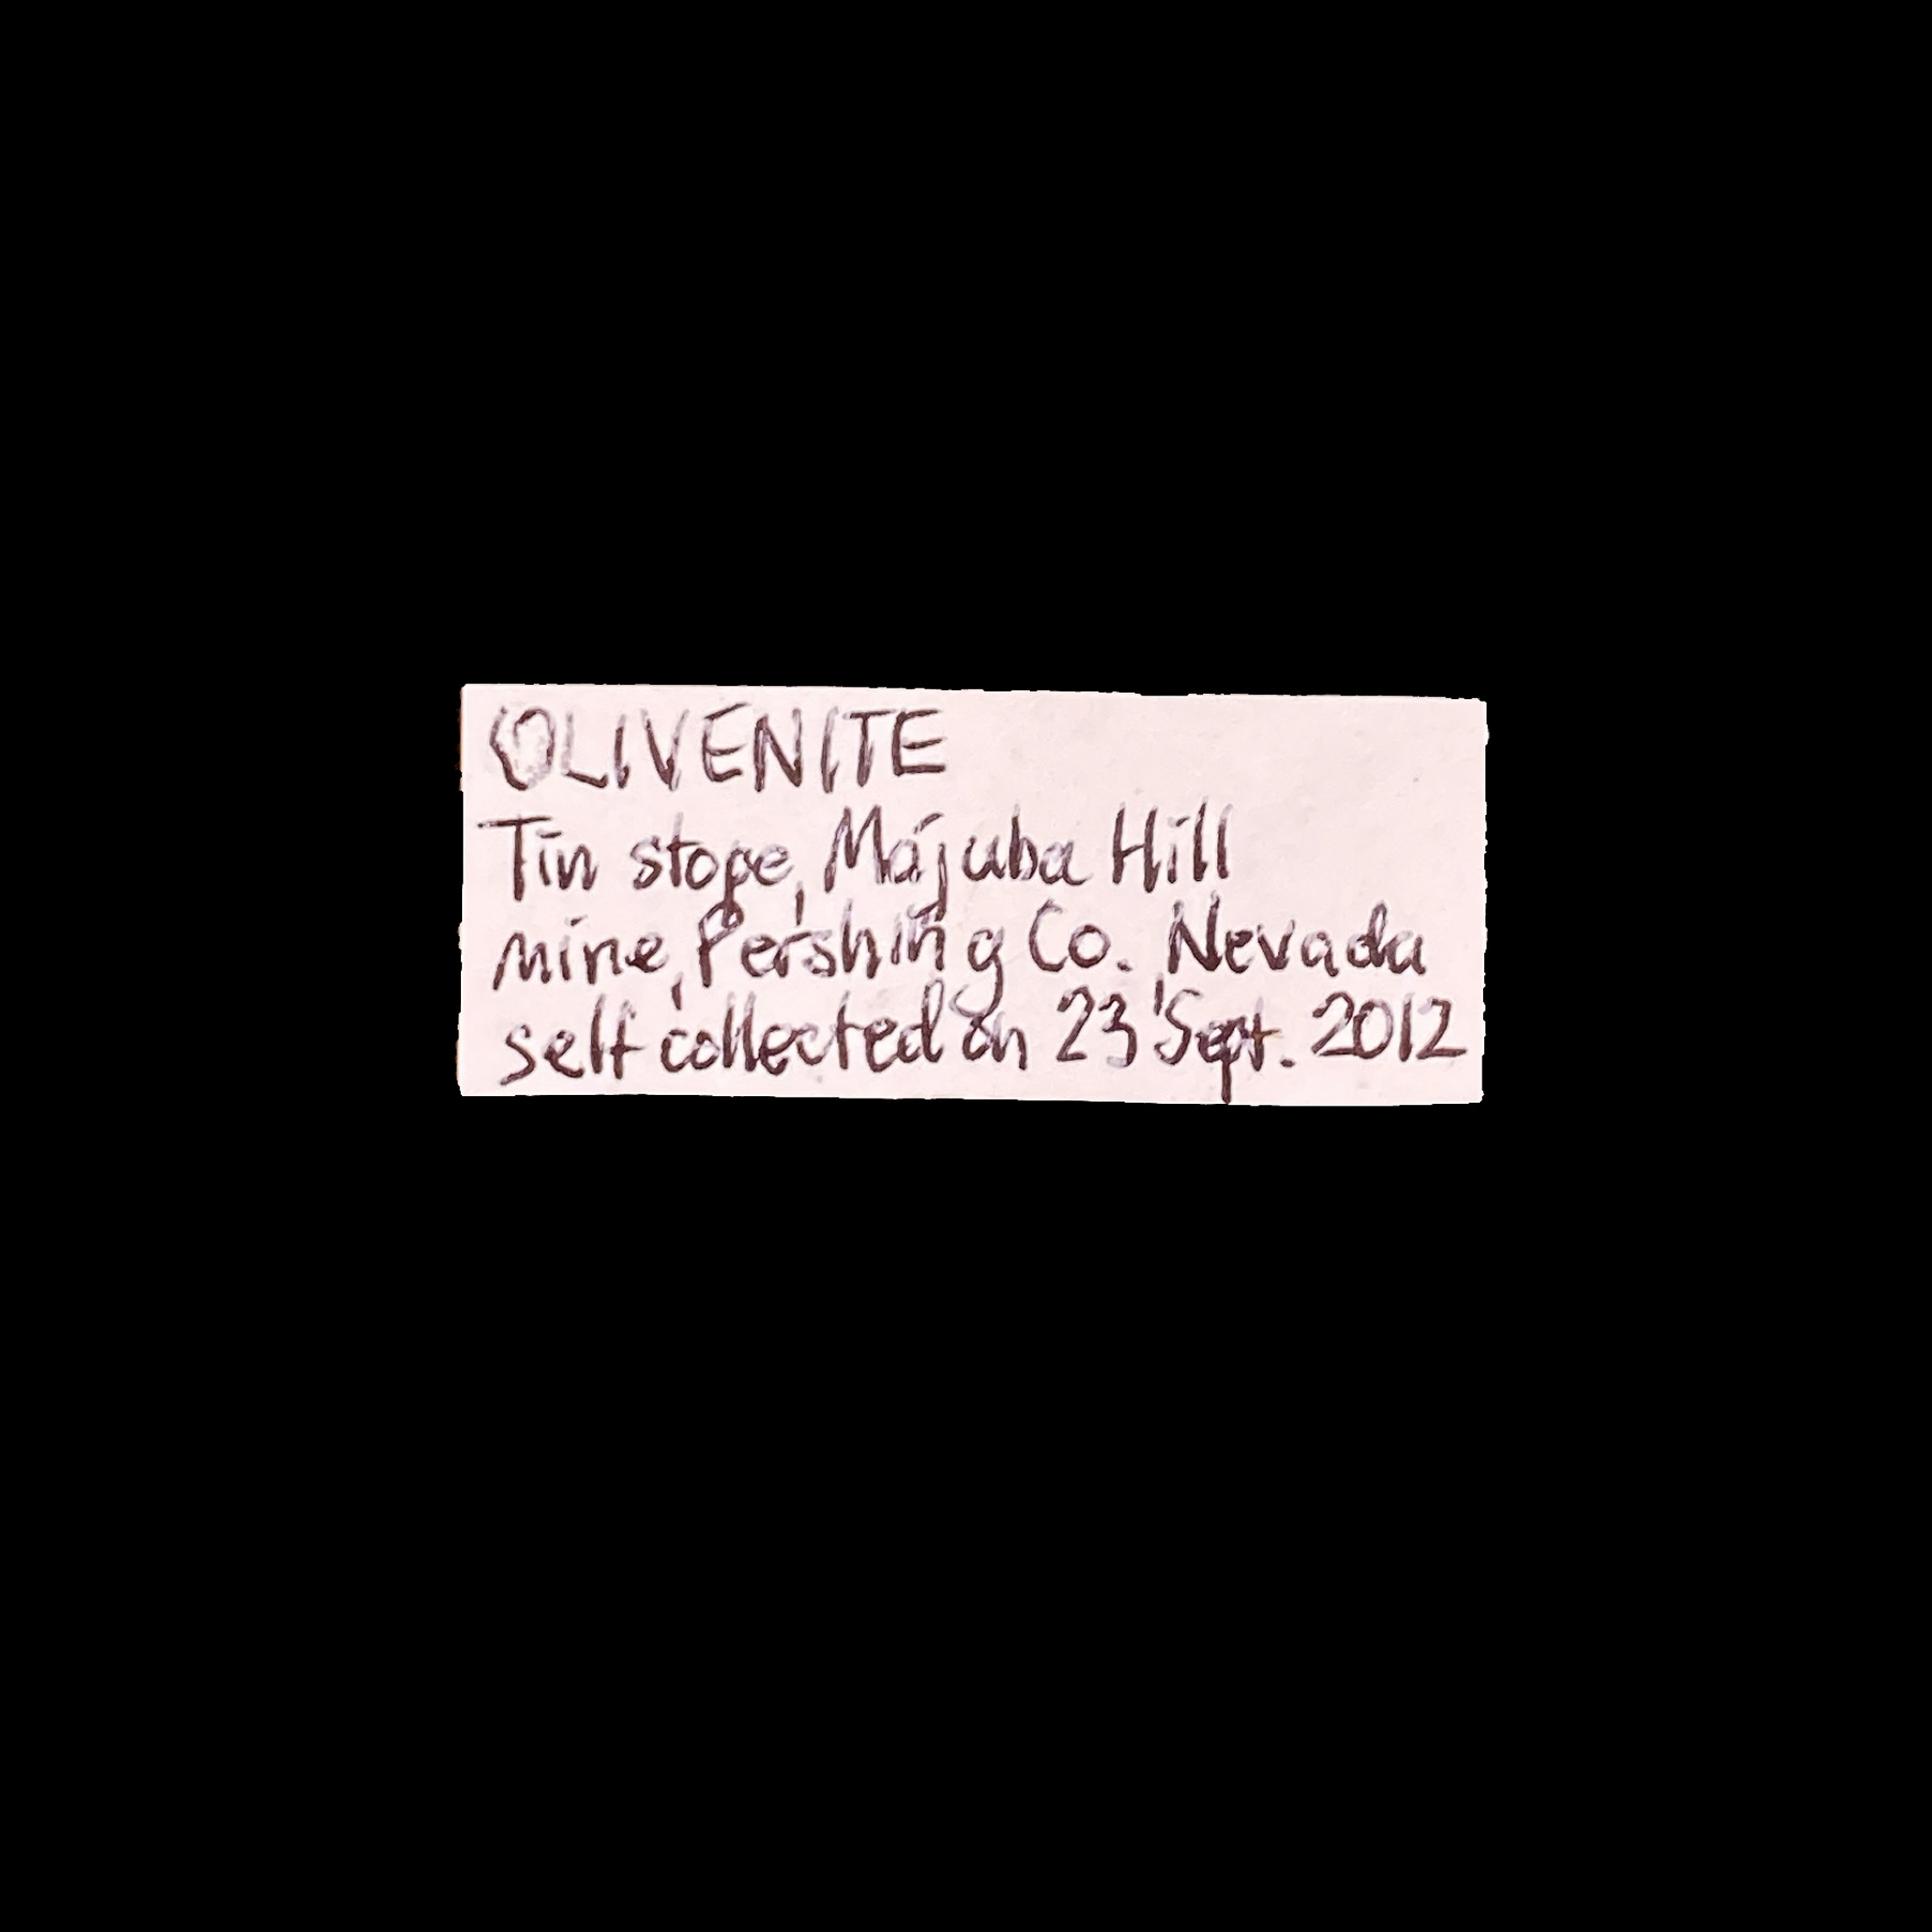 OLIVENITE
Tin stope, Majuba Hill
mine, Pershing Co. Nevada
self collected on 23 Sept. 2012